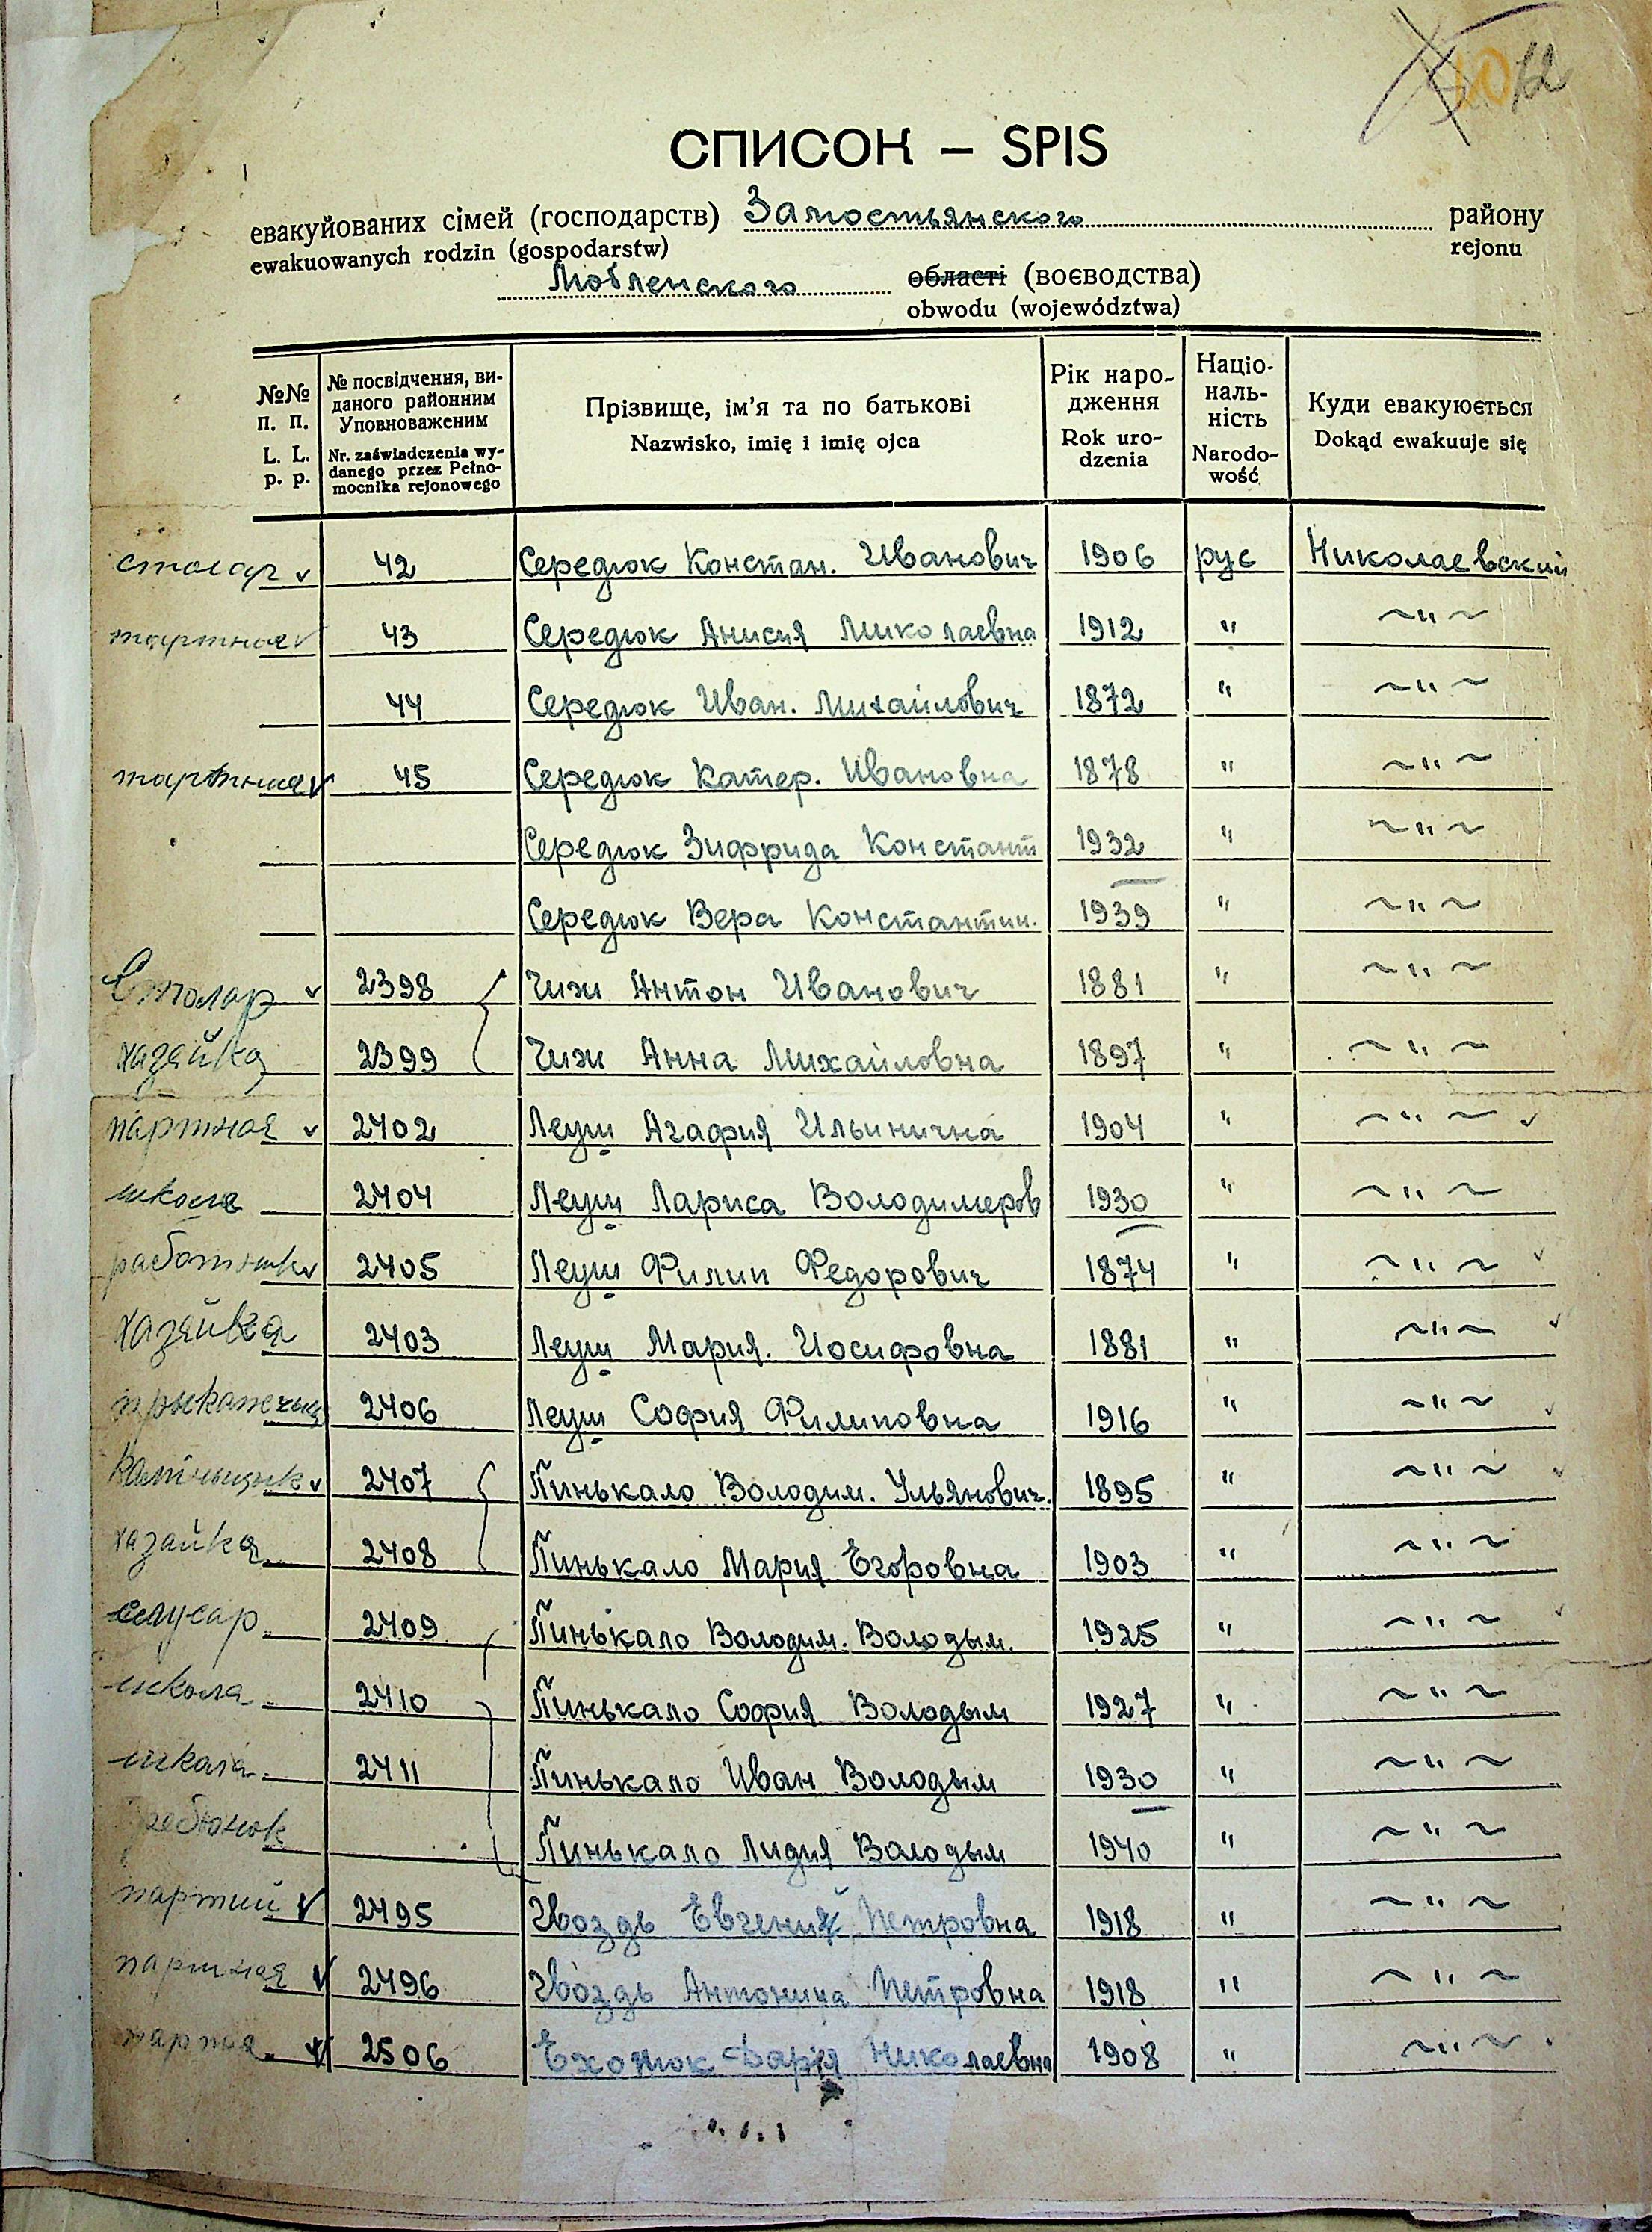 12
СПИСОК – SPIS
евакуйованих сімей (господарств) Замостьянского району
ewakuowanych rodzin (gospodarstw) rejonu
Любленского області (воєводства)
obwodu (województwa)
№№ п. п. L. L. p. p. № посвідчення, виданого районним Уповноваженим Nr. zaświadczenia wydanego przez Pełnomocnika rejonowego Прізвище, ім'я та по батькові Nazwisko, imię i imię ojca Рік народження Rok urodzenia Національність Narodowość Куди евакуюється Dokąd ewakuuje się
столяр 42 Середюк Констан. Иванович 1906 рус Николаевский
партная 43 Середюк Анисия Миколаевна 1912 " ~"~
44 Середюк Иван. Михайлович 1872 " ~"~
партная 45 Середюк Катер. Ивановна 1878 " ~"~
Середюк Зифрида Констант 1932 " ~"~
Середюк Вера Константин. 1939 " ~"~
Столяр 2398 Чиж Антон Иванович 1881 " ~"~
хазяйка 2399 Чиж Анна Михайловна 1897 " ~"~
партная 2402 Леуш Агафия Ильинична 1904 " ~"~
школа 2404 Леуш Лариса Володимеров 1930 " ~"~
работник 2405 Леуш Филип Федорович 1874 " ~"~
хазяйка 2403 Леуш Мария. Иосифовна 1881 " ~"~
2406 Леуш София Филиповна 1916 " ~"~
2407 Пинькало Володим. Ульянович. 1895 " ~"~
хазайка 2408 Пинькало Мария Егоровна 1903 " ~"~
слусар 2409 Пинькало Володим. Володым. 1925 " ~"~
школа 2410 Пинькало София Володым 1927 " ~"~
школа 2411 Пинькало Иван Володым 1930 " ~"~
ребюнок Пинькало Лидия Володым 1940 " ~"~
партний 2495 Гвоздь Евгений Петровна 1918 " ~"~
партная 2496 Гвоздь Антонина Петровна 1918 " ~"~
2506 Дария Николаевна 1908 " ~"~